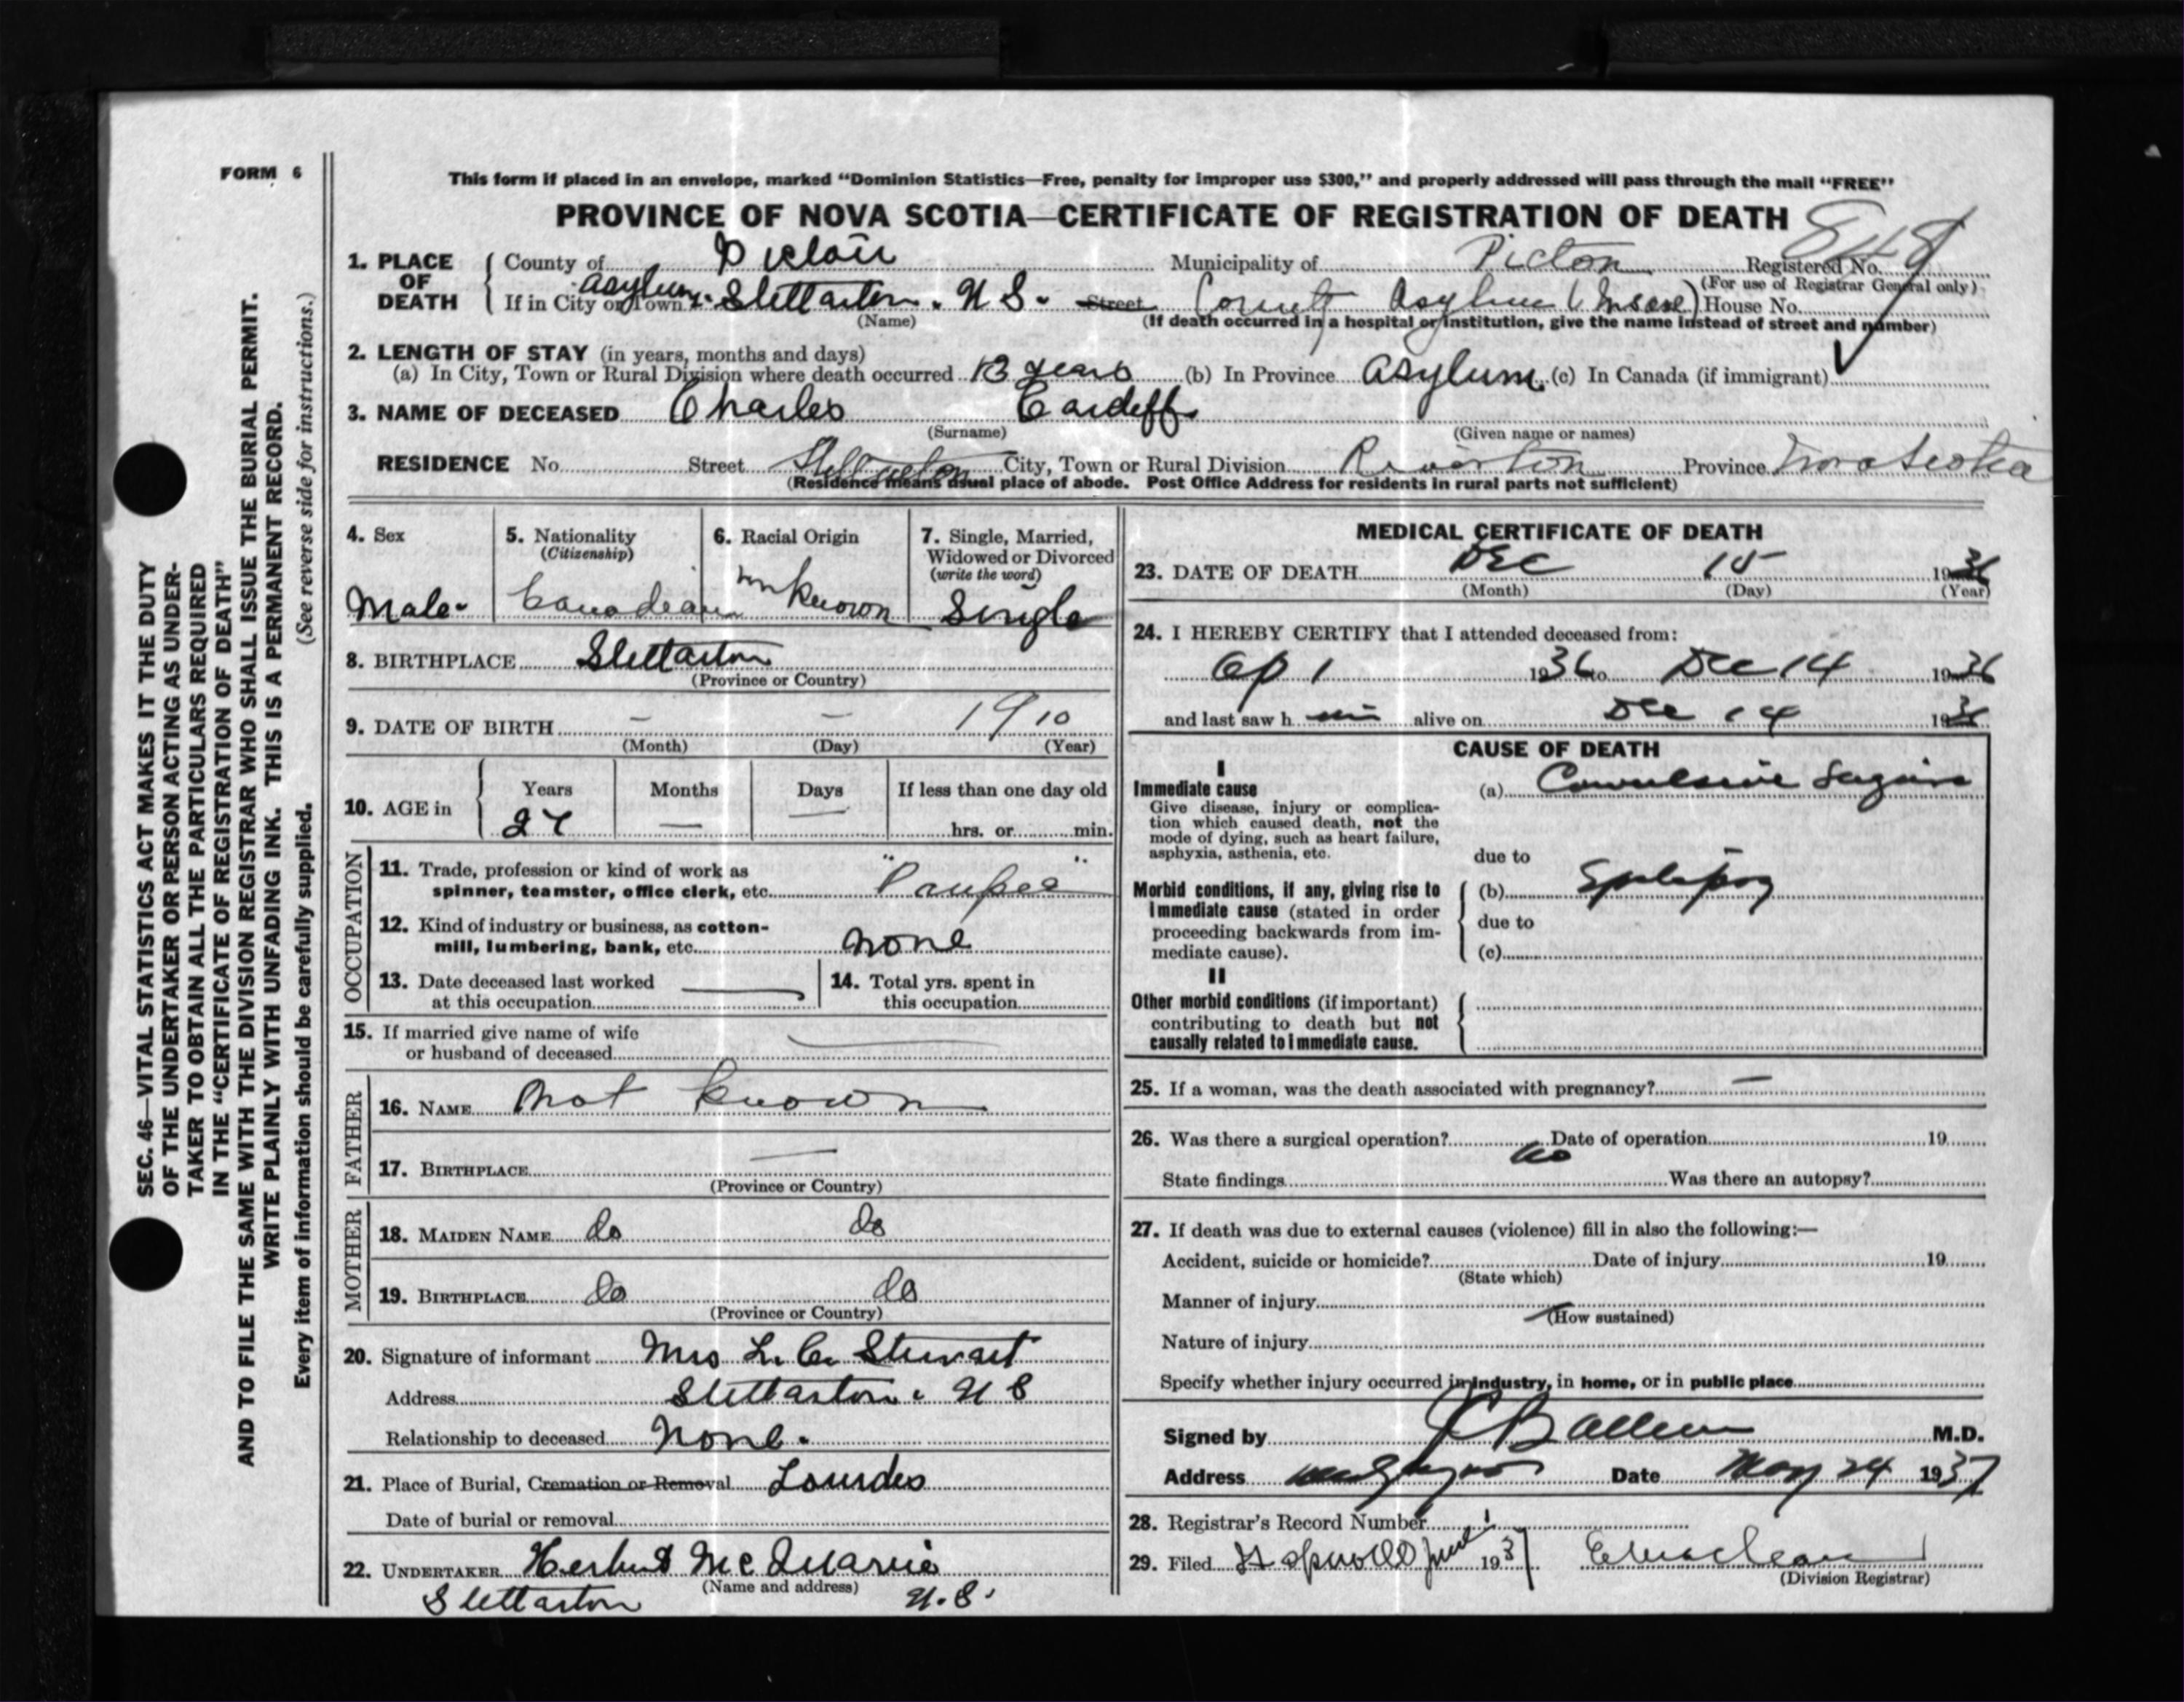 FORM 6
This form if placed in an envelope, marked "Dominion Statistics—Free, penalty for improper use $300," and properly addressed will pass through the mail "FREE"
PROVINCE OF NOVA SCOTIA—CERTIFICATE OF REGISTRATION OF DEATH
1. PLACE OF DEATH
County of Pictou Municipality of Pictou Registered No. 848
(For use of Registrar General only)
If in City or Town Asylum. Stellarton. N S. Street County Asylum (Insane) House No.
(Name) (If death occurred in a hospital or institution, give the name instead of street and number)
2. LENGTH OF STAY (in years, months and days)
(a) In City, Town or Rural Division where death occurred 13 years (b) In Province Asylum. (c) In Canada (if immigrant)
3. NAME OF DECEASED Charles Cardeff
(Surname) (Given name or names)
RESIDENCE No. Street Stellarton City, Town or Rural Division Riverton Province Nova Scotia
(Residence means usual place of abode. Post Office Address for residents in rural parts not sufficient)
4. Sex
Male.
5. Nationality
(Citizenship)
Canadian
6. Racial Origin
unknown
7. Single, Married,
Widowed or Divorced
(write the word)
Single
8. BIRTHPLACE Stellarton
(Province or Country)
9. DATE OF BIRTH — — 1910
(Month) (Day) (Year)
10. AGE in
Years Months Days If less than one day old
27 — — hrs. or min.
OCCUPATION
11. Trade, profession or kind of work as
spinner, teamster, office clerk, etc. "Pauper"
12. Kind of industry or business, as cotton-
mill, lumbering, bank, etc. none
13. Date deceased last worked
at this occupation
14. Total yrs. spent in
this occupation
15. If married give name of wife
or husband of deceased
FATHER
16. NAME not known
17. BIRTHPLACE —
(Province or Country)
MOTHER
18. MAIDEN NAME do do
19. BIRTHPLACE do do
(Province or Country)
20. Signature of informant Mrs L. C. Stewart
Address Stellarton. N S
Relationship to deceased None.
21. Place of Burial, Cremation or Removal Lourdes
Date of burial or removal
22. UNDERTAKER Herbert McQuarrie
(Name and address)
Stellarton N.S.
MEDICAL CERTIFICATE OF DEATH
23. DATE OF DEATH Dec 15 1936
(Month) (Day) (Year)
24. I HEREBY CERTIFY that I attended deceased from:
Ap 1 1936 to Dec 14 1936
and last saw him alive on Dec 14 1936
CAUSE OF DEATH
I
Immediate cause
Give disease, injury or complica-
tion which caused death, not the
mode of dying, such as heart failure,
asphyxia, asthenia, etc.
(a) Convulsive
due to
Morbid conditions, if any, giving rise to
immediate cause (stated in order
proceeding backwards from im-
mediate cause).
(b) Epilepsy
due to
(c)
II
Other morbid conditions (if important)
contributing to death but not
causally related to immediate cause.
25. If a woman, was the death associated with pregnancy? —
26. Was there a surgical operation? no Date of operation 19
State findings Was there an autopsy?
27. If death was due to external causes (violence) fill in also the following:—
Accident, suicide or homicide? Date of injury 19
(State which)
Manner of injury
(How sustained)
Nature of injury
Specify whether injury occurred in industry, in home, or in public place
Signed by M.D.
Address Date May 24 1937
28. Registrar's Record Number 1
29. Filed 1937
(Division Registrar)
SEC. 46—VITAL STATISTICS ACT MAKES IT THE DUTY
OF THE UNDERTAKER OR PERSON ACTING AS UNDER-
TAKER TO OBTAIN ALL THE PARTICULARS REQUIRED
IN THE "CERTIFICATE OF REGISTRATION OF DEATH"
AND TO FILE THE SAME WITH THE DIVISION REGISTRAR WHO SHALL ISSUE THE BURIAL PERMIT.
WRITE PLAINLY WITH UNFADING INK. THIS IS A PERMANENT RECORD.
Every item of information should be carefully supplied. (See reverse side for instructions.)